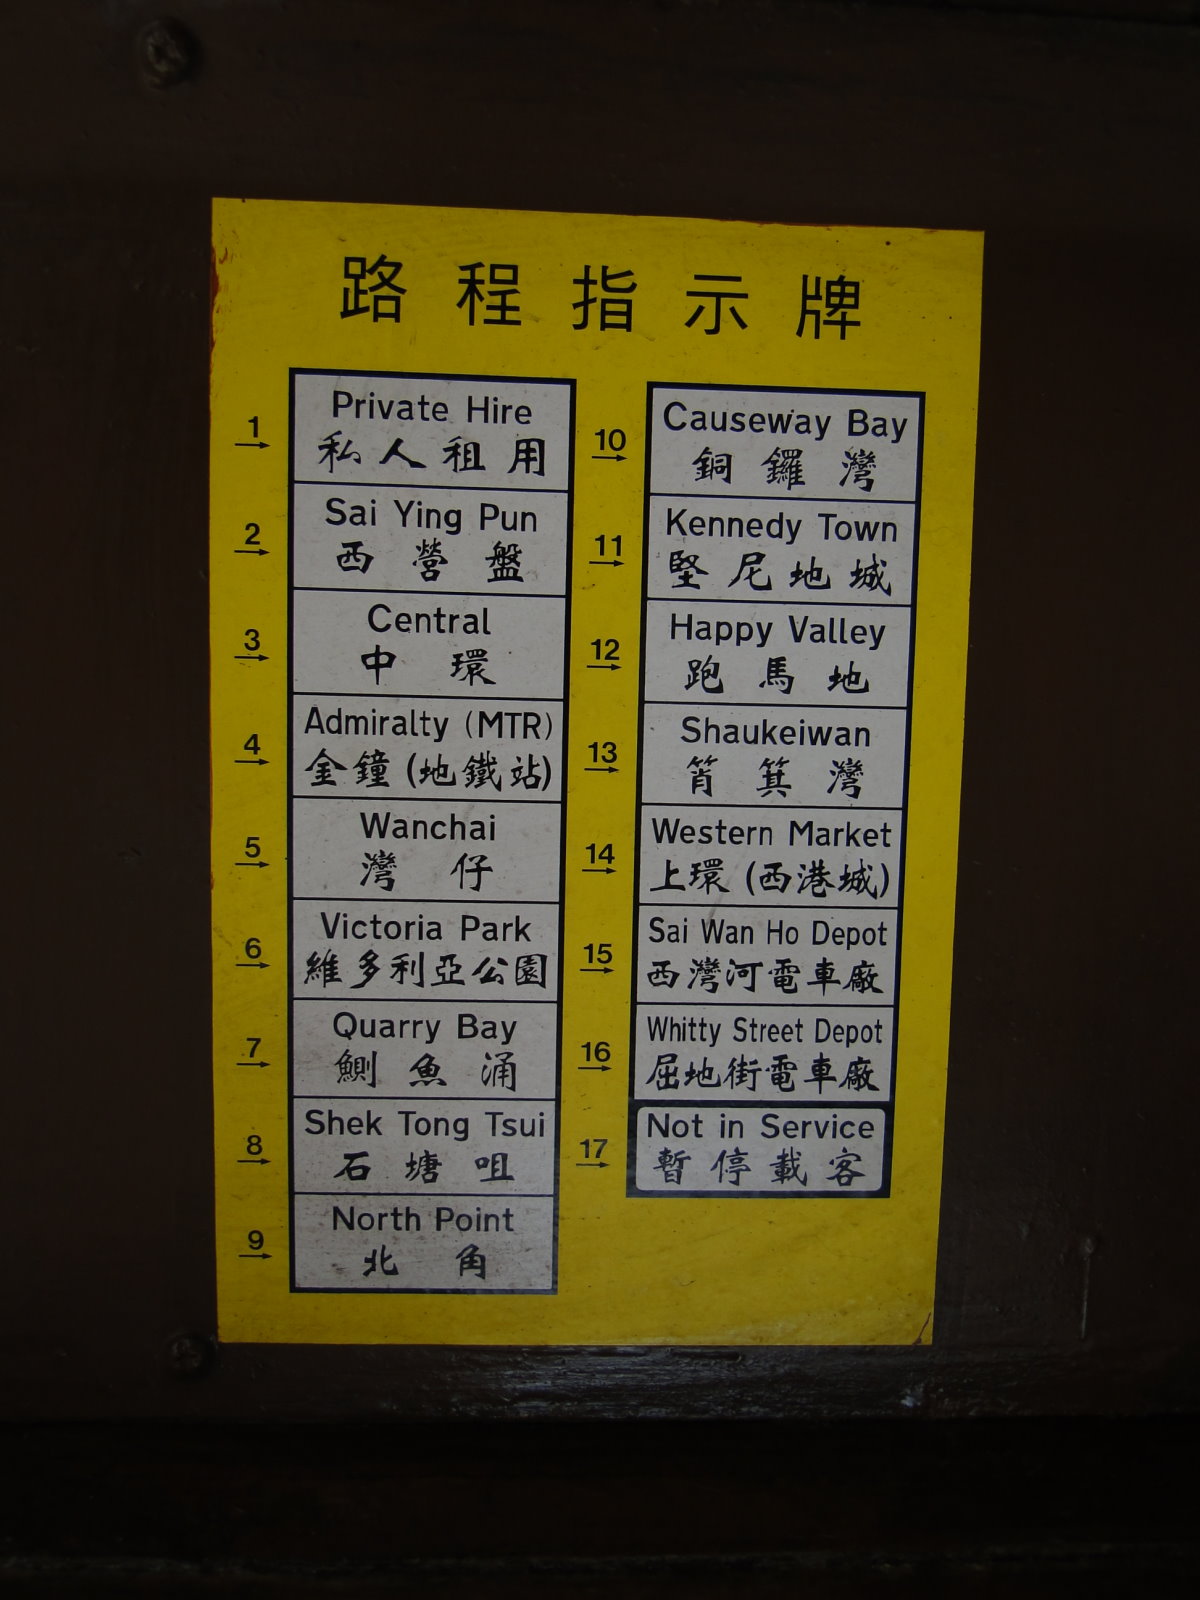 路程指示牌
1 Private Hire
私人租用
2 Sai Ying Pun
西營盤
3 Central
中環
4 Admiralty (MTR)
金鐘(地鐵站)
5 Wanchai
灣仔
6 Victoria Park
維多利亞公園
7 Quarry Bay
鰂魚涌
8 Shek Tong Tsui
石塘咀
9 North Point
北角
10 Causeway Bay
銅鑼灣
11 Kennedy Town
堅尼地城
12 Happy Valley
跑馬地
13 Shaukeiwan
筲箕灣
14 Western Market
上環(西港城)
15 Sai Wan Ho Depot
西灣河電車廠
16 Whitty Street Depot
屈地街電車廠
17 Not in Service
暫停載客